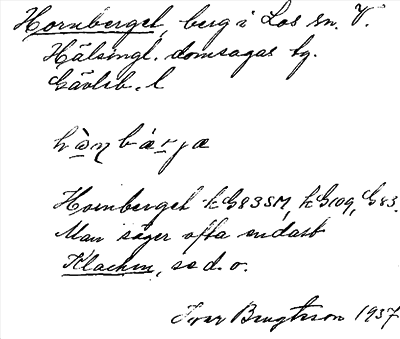 Hornberget, berg i Los sn. V.
Hälsingl. domsagas tg.
Gävleb. l
Hornberget k G83SM, k G109, G83.
Man säger ofta endast
Klacken, se d. o.
Ivar Bengtsson 1937